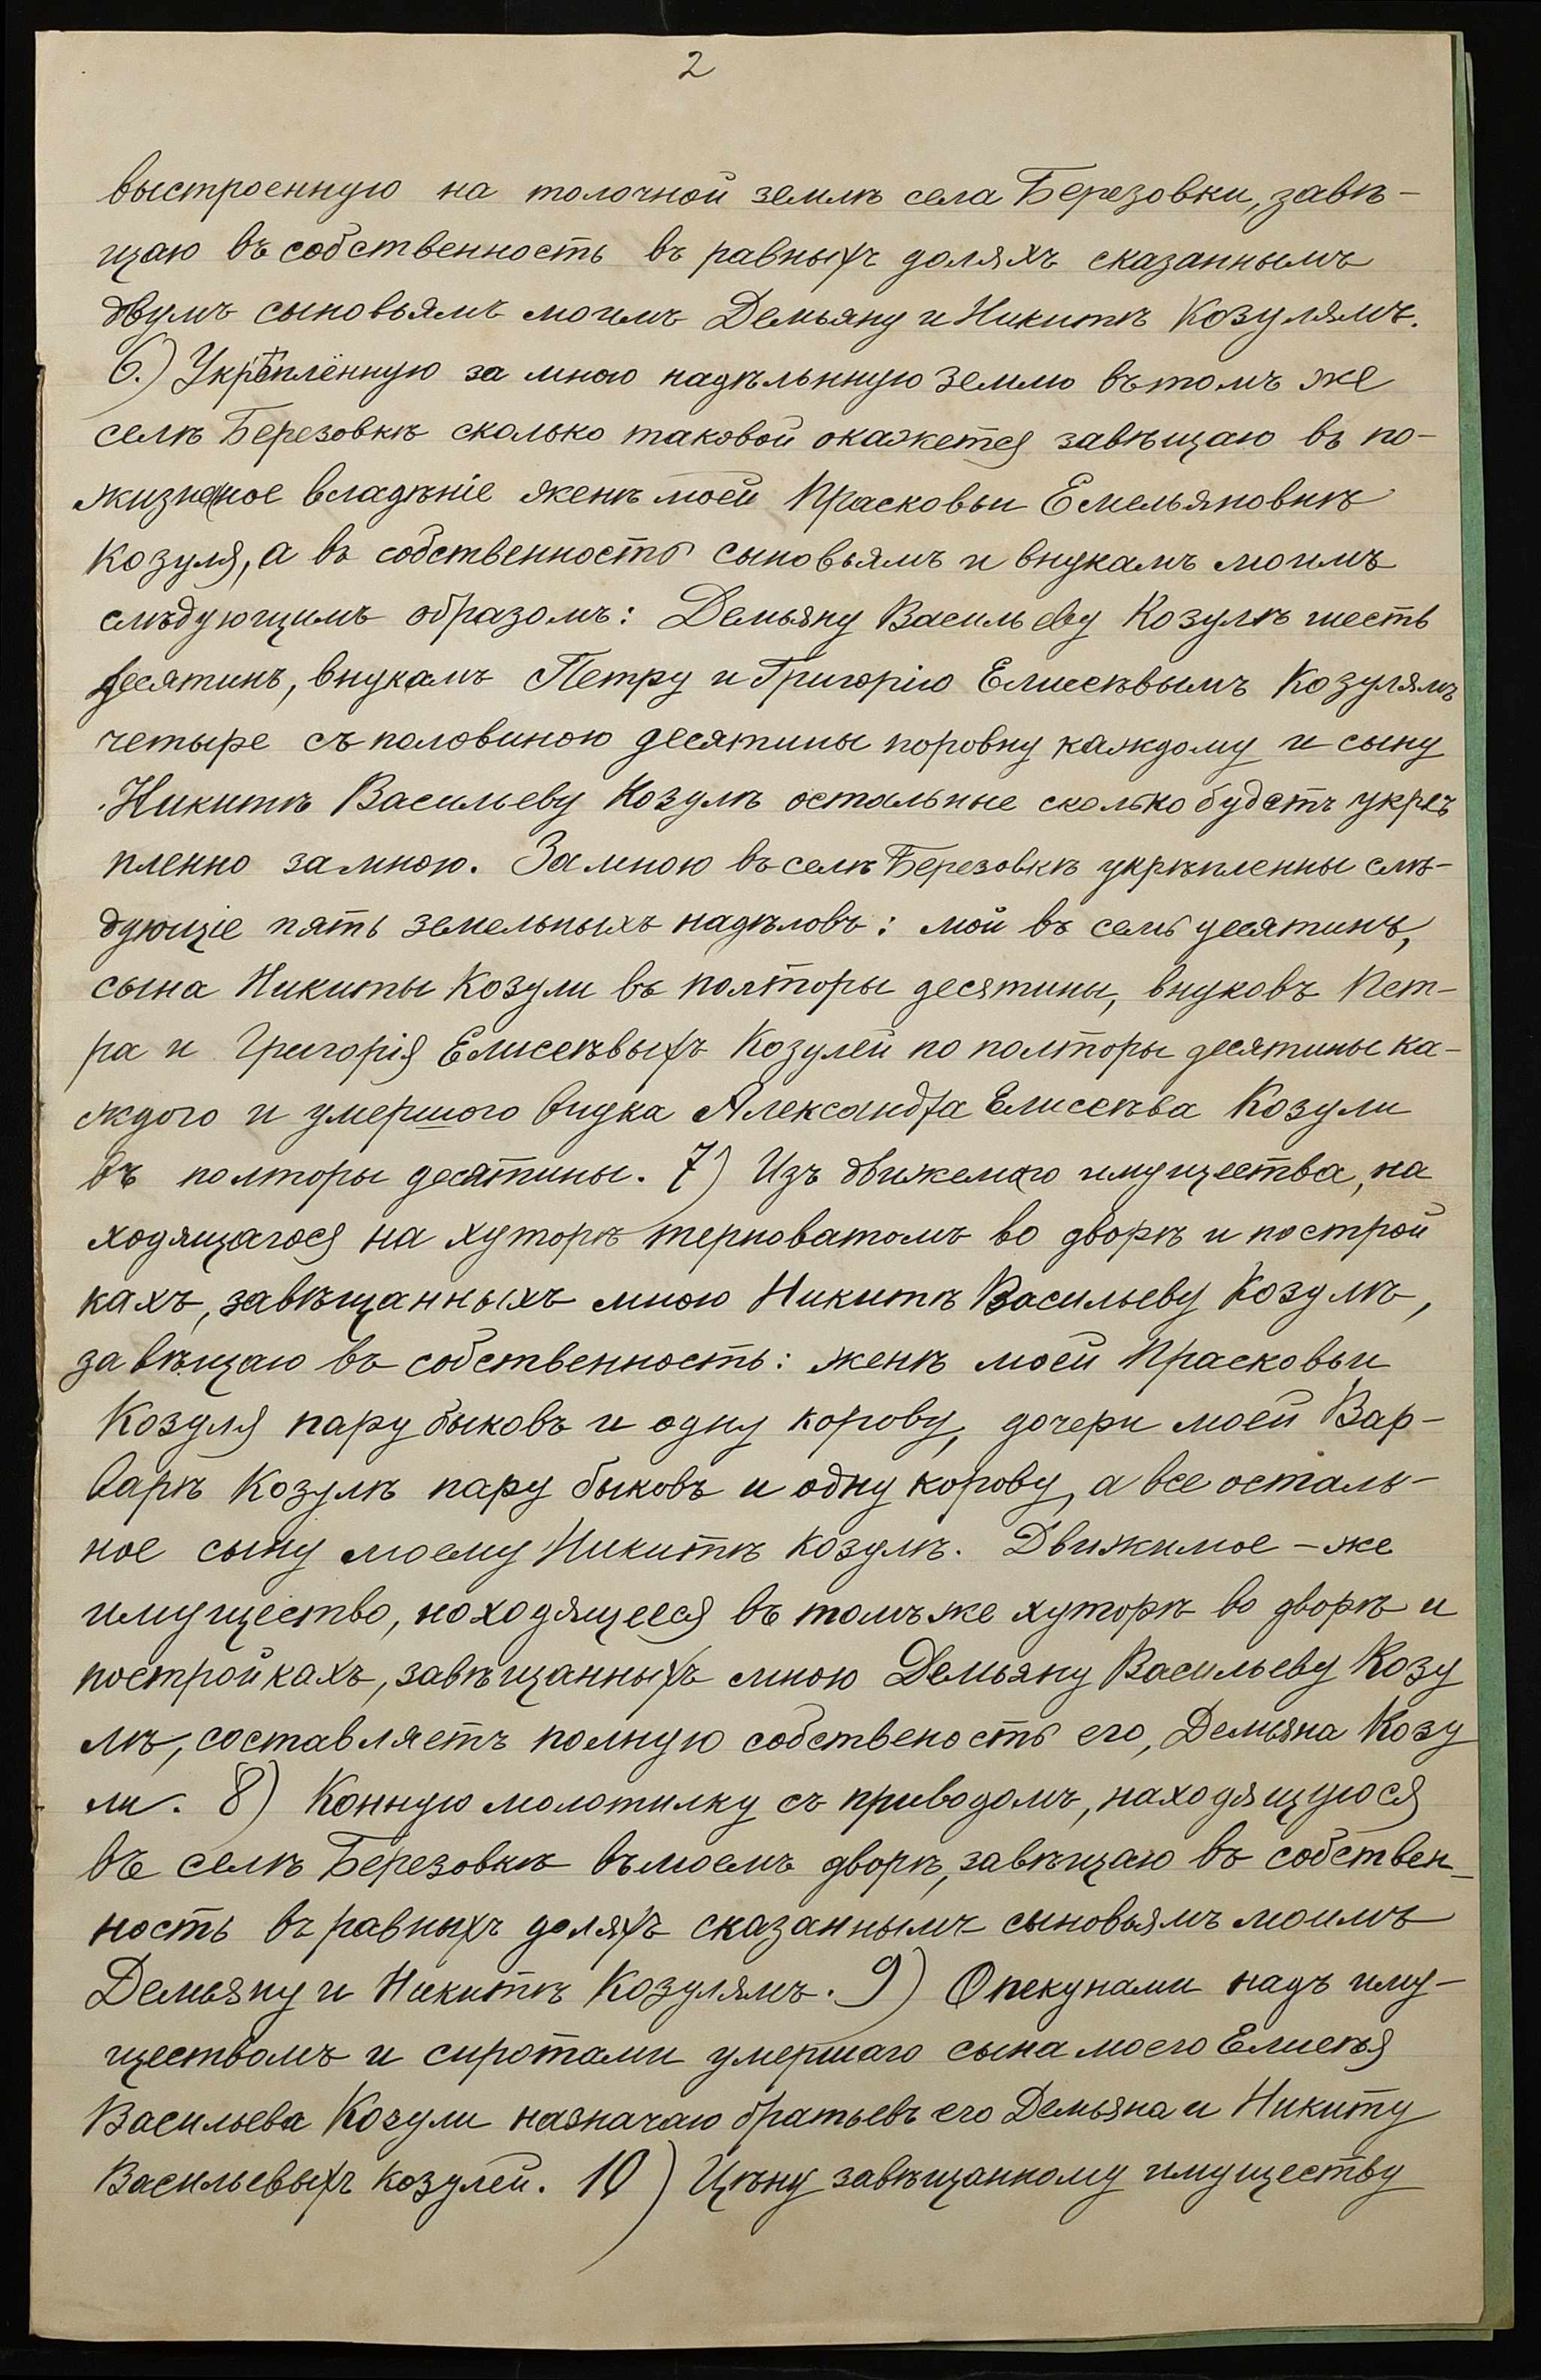 2
выстроенную на толочной землѣ села Березовки, завѣ-
щаю въ собственность въ равныхъ доляхъ сказаннымъ
двумъ сыновьямъ моимъ Демьяну и Никитѣ Козулямъ.
6.) Укрѣплённую за мною надѣльнную землю въ томъ же
селѣ Березовкѣ сколько таковой окажется завѣщаю въ по-
жизненое владѣніе женѣ моей Прасковьи Емельяновнѣ
Козуля, а въ собственность сыновьямъ и внукамъ моимъ
слѣдующимъ образомъ: Демьяну Васильеву Козулѣ шесть
десятинъ, внукамъ Петру и Григорію Елисеѣвымъ Козулямъ
четыре съ половиною десятины поровну каждому и сыну
Никитѣ Васильеву Козулѣ остальные сколько будетъ укрѣ
пленно за мною. За мною въ селѣ Березовкѣ укрѣпленны слѣ-
дующіе пять земельныхъ надѣловъ: мой въ семь десятинъ,
сына Никиты Козули въ полторы десятины, внуковъ Пет-
ра и Григорія Елисеѣвыхъ Козулей по полторы десятины ка-
ждого и умершого внука Александра Елисеѣва Козули
въ полторы десятины. 7) Изъ движемаго имущества, на
ходящагося на хуторѣ терноватомъ во дворѣ и построй
кахъ, завѣщанныхъ мною Никитѣ Васильеву Козулѣ,
завѣщаю въ собственность: женѣ моей Прасковьи
Козуля пару быковъ и одну корову, дочери моей Вар-
варѣ Козулѣ пару быковъ и одну корову, а все осталь-
ное сыну моему Никитѣ Козулѣ. Движимое - же
имущество, находящееся въ томъ же хуторѣ во дворѣ и
постройкахъ, завѣщанныхъ мною Демьяну Васильеву Козу
лѣ, составляетъ полную собственость его, Демьяна Козу
ли. 8) Конную молотилку съ приводомъ, находящуюся
въ селѣ Березовкѣ въ моемъ дворѣ, завѣщаю въ собствен-
ность въ равныхъ доляхъ сказаннымъ сыновьямъ моимъ
Демьяну и Никитѣ Козулямъ. 9) Опекунами надъ иму-
ществомъ и сиротами умершаго сына моего Елисѣя
Васильева Козули назначаю братьевъ его Демьяна и Никиту
Васильевыхъ Козулей. 10) Цѣну завѣщанному имуществу